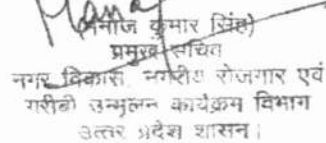 (मनोज कुमार सिंह)
प्रमुख सचिव
नगर विकास, नगरीय रोजगार एवं
गरीबी उन्मूलन कार्यक्रम विभाग
उत्तर प्रदेश शासन।